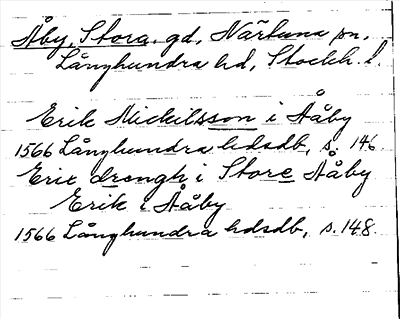 Åby, Stora, gd, Närtuna sn,
Långhundra hd, Stockh. l.
Erik Mickilsson i Ååby
1566 Långhundra hdsdb, s. 146
Eric drengh i Store Ååby
Erik i Ååby
1566 Långhundra hdsdb, s. 148